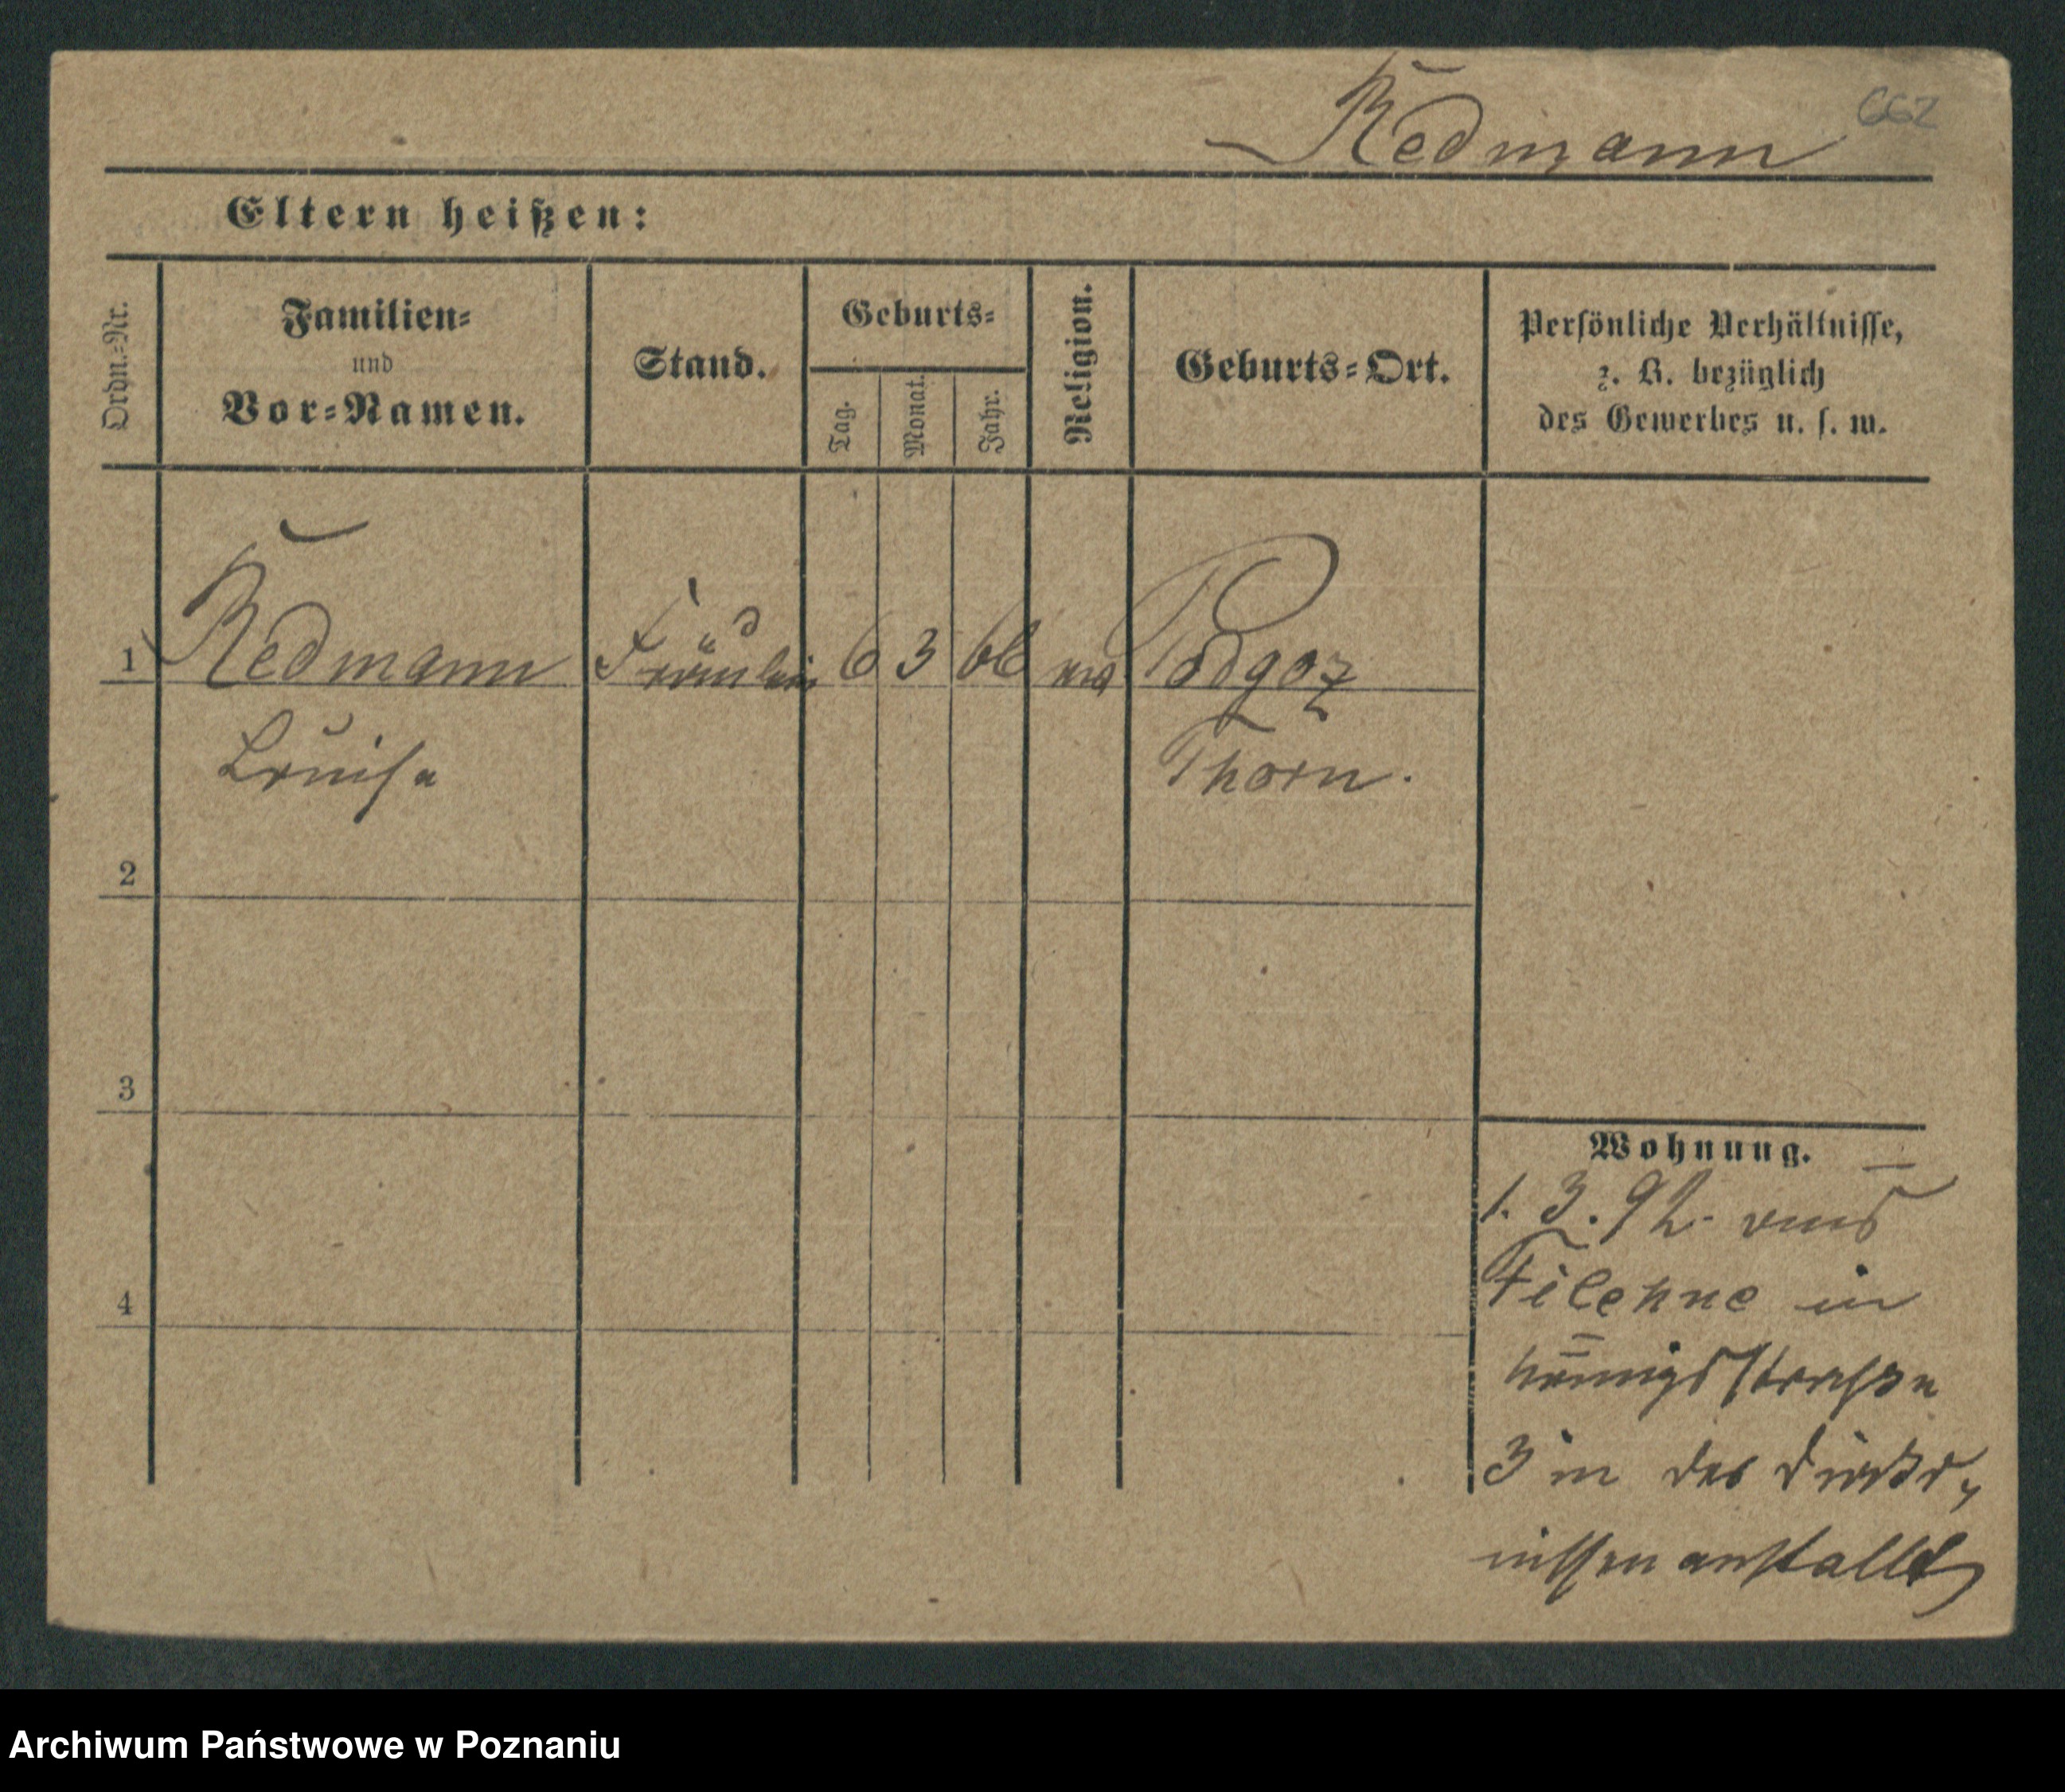 Redmann 662
Eltern heißen:
Ordn.=Nr.
Familien=
und
Vor=Namen.
Stand.
Geburts=
Tag.
Monat.
Jahr.
Religion.
Geburts=Ort.
Persönliche Verhältnisse,
z. B. bezüglich
des Gewerbes u. s. w.
1 Redmann Fräulein 6 3 66 Podgoz
Louise Thorn.
2
3
4
Wohnung.
1. 3. 92. aus
Filehne in
Königsstrasse
3 in der Diako,
nissenanstallt
Archiwum Państwowe w Poznaniu